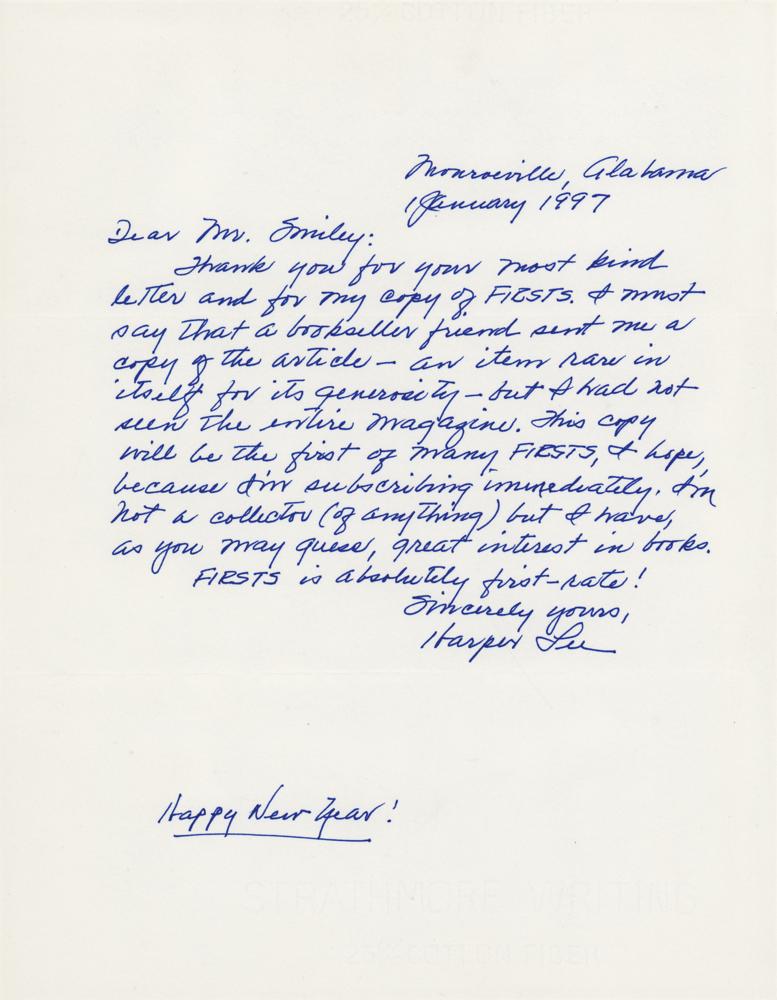 25% COTTON FIBER
Monroeville, Alabama
1 January 1997
Dear Mr. Smiley:
Thank you for your most kind
letter and for my copy of FIRSTS. I must
say that a bookseller friend sent me a
copy of the article — an item rare in
itself for its generosity — but I had not
seen the entire magazine. This copy
will be the first of many FIRSTS, I hope,
because I'm subscribing immediately. I'm
not a collector (of anything) but I have,
as you may guess, great interest in books.
FIRSTS is absolutely first-rate!
Sincerely yours,
Harper Lee
Happy New Year!
STRATHMORE WRITING
25% COTTON FIBER